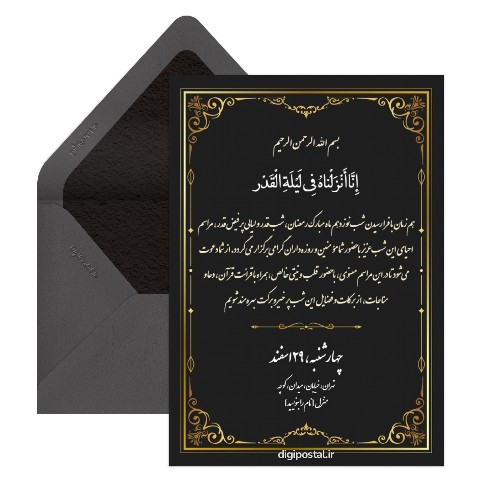 بسم الله الرحمن الرحیم
إِنَّا أَنْزَلْنَاهُ فِي لَيْلَةِ الْقَدْرِ
هم زمان با فرا رسیدن شب نوزدهم ماه مبارک رمضان، شب قدر و لیالی پر فیض قدر، مراسم
احیای این شب عزیز با حضور شما مؤمنین و روزه داران گرامی برگزار می گردد. از شما دعوت
می شود تا در این مراسم معنوی، با حضور قلب و نیتی خالص، همراه با قرائت قرآن، دعا و
مناجات، از برکات و فضایل این شب پر خیر و برکت بهره مند شویم
چهارشنبه، ۲۹ اسفند
تهران، خیابان، میدان، کوچه
منزل (نام را بنویسید)
digipostal.ir